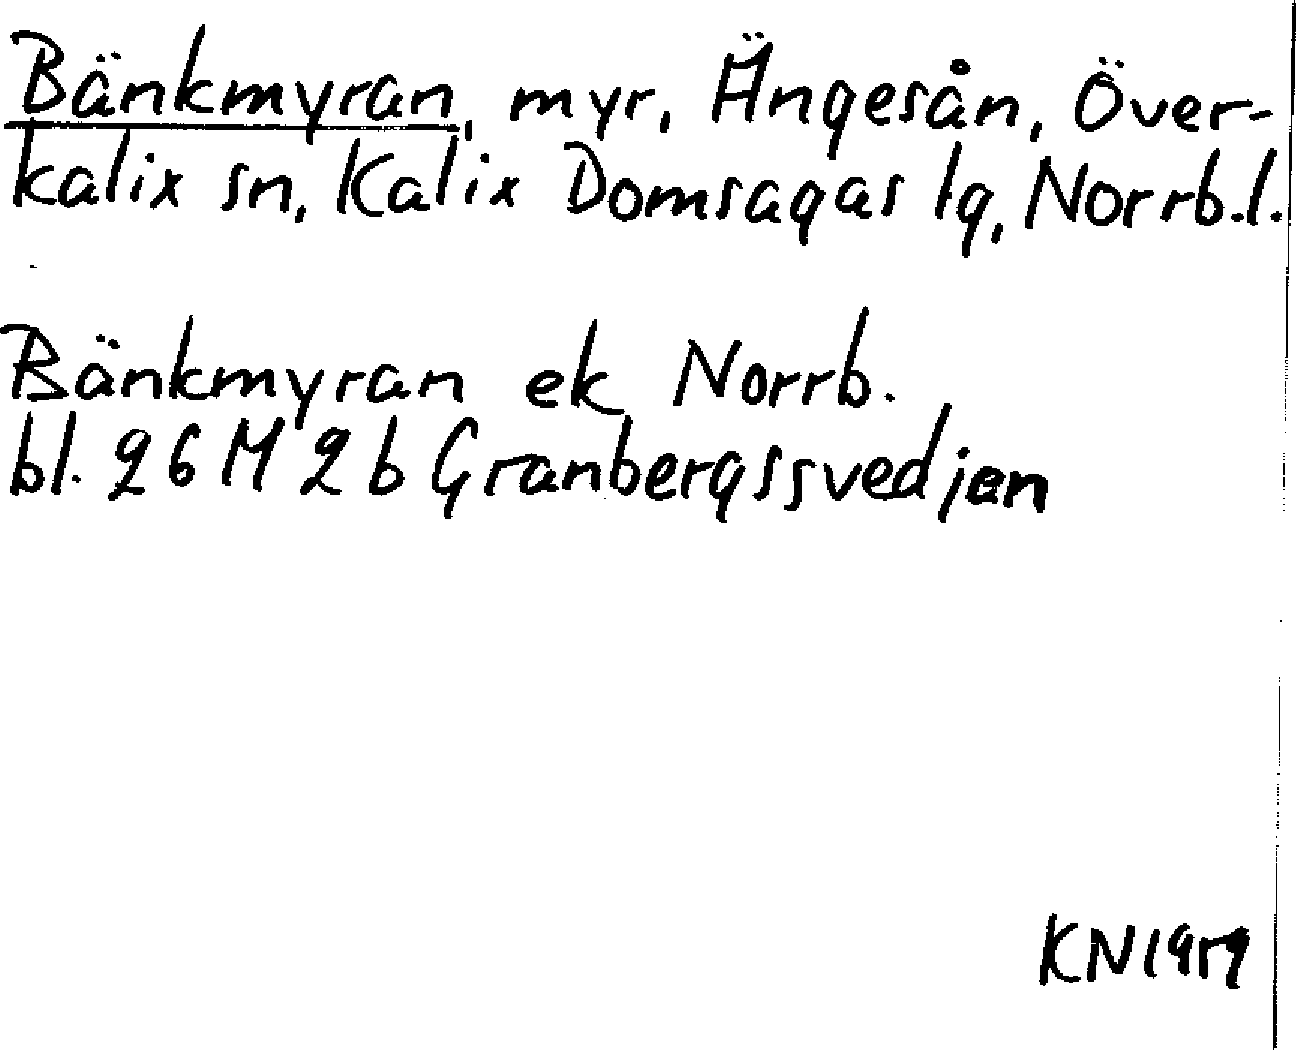 Bänkmyran, myr, Ängesån, Över-
kalix sn, Kalix Domsagas lg, Norrb.l.
Bänkmyran ek Norrb.
bl. 26 M 2 b Granbergssvedjen
KN